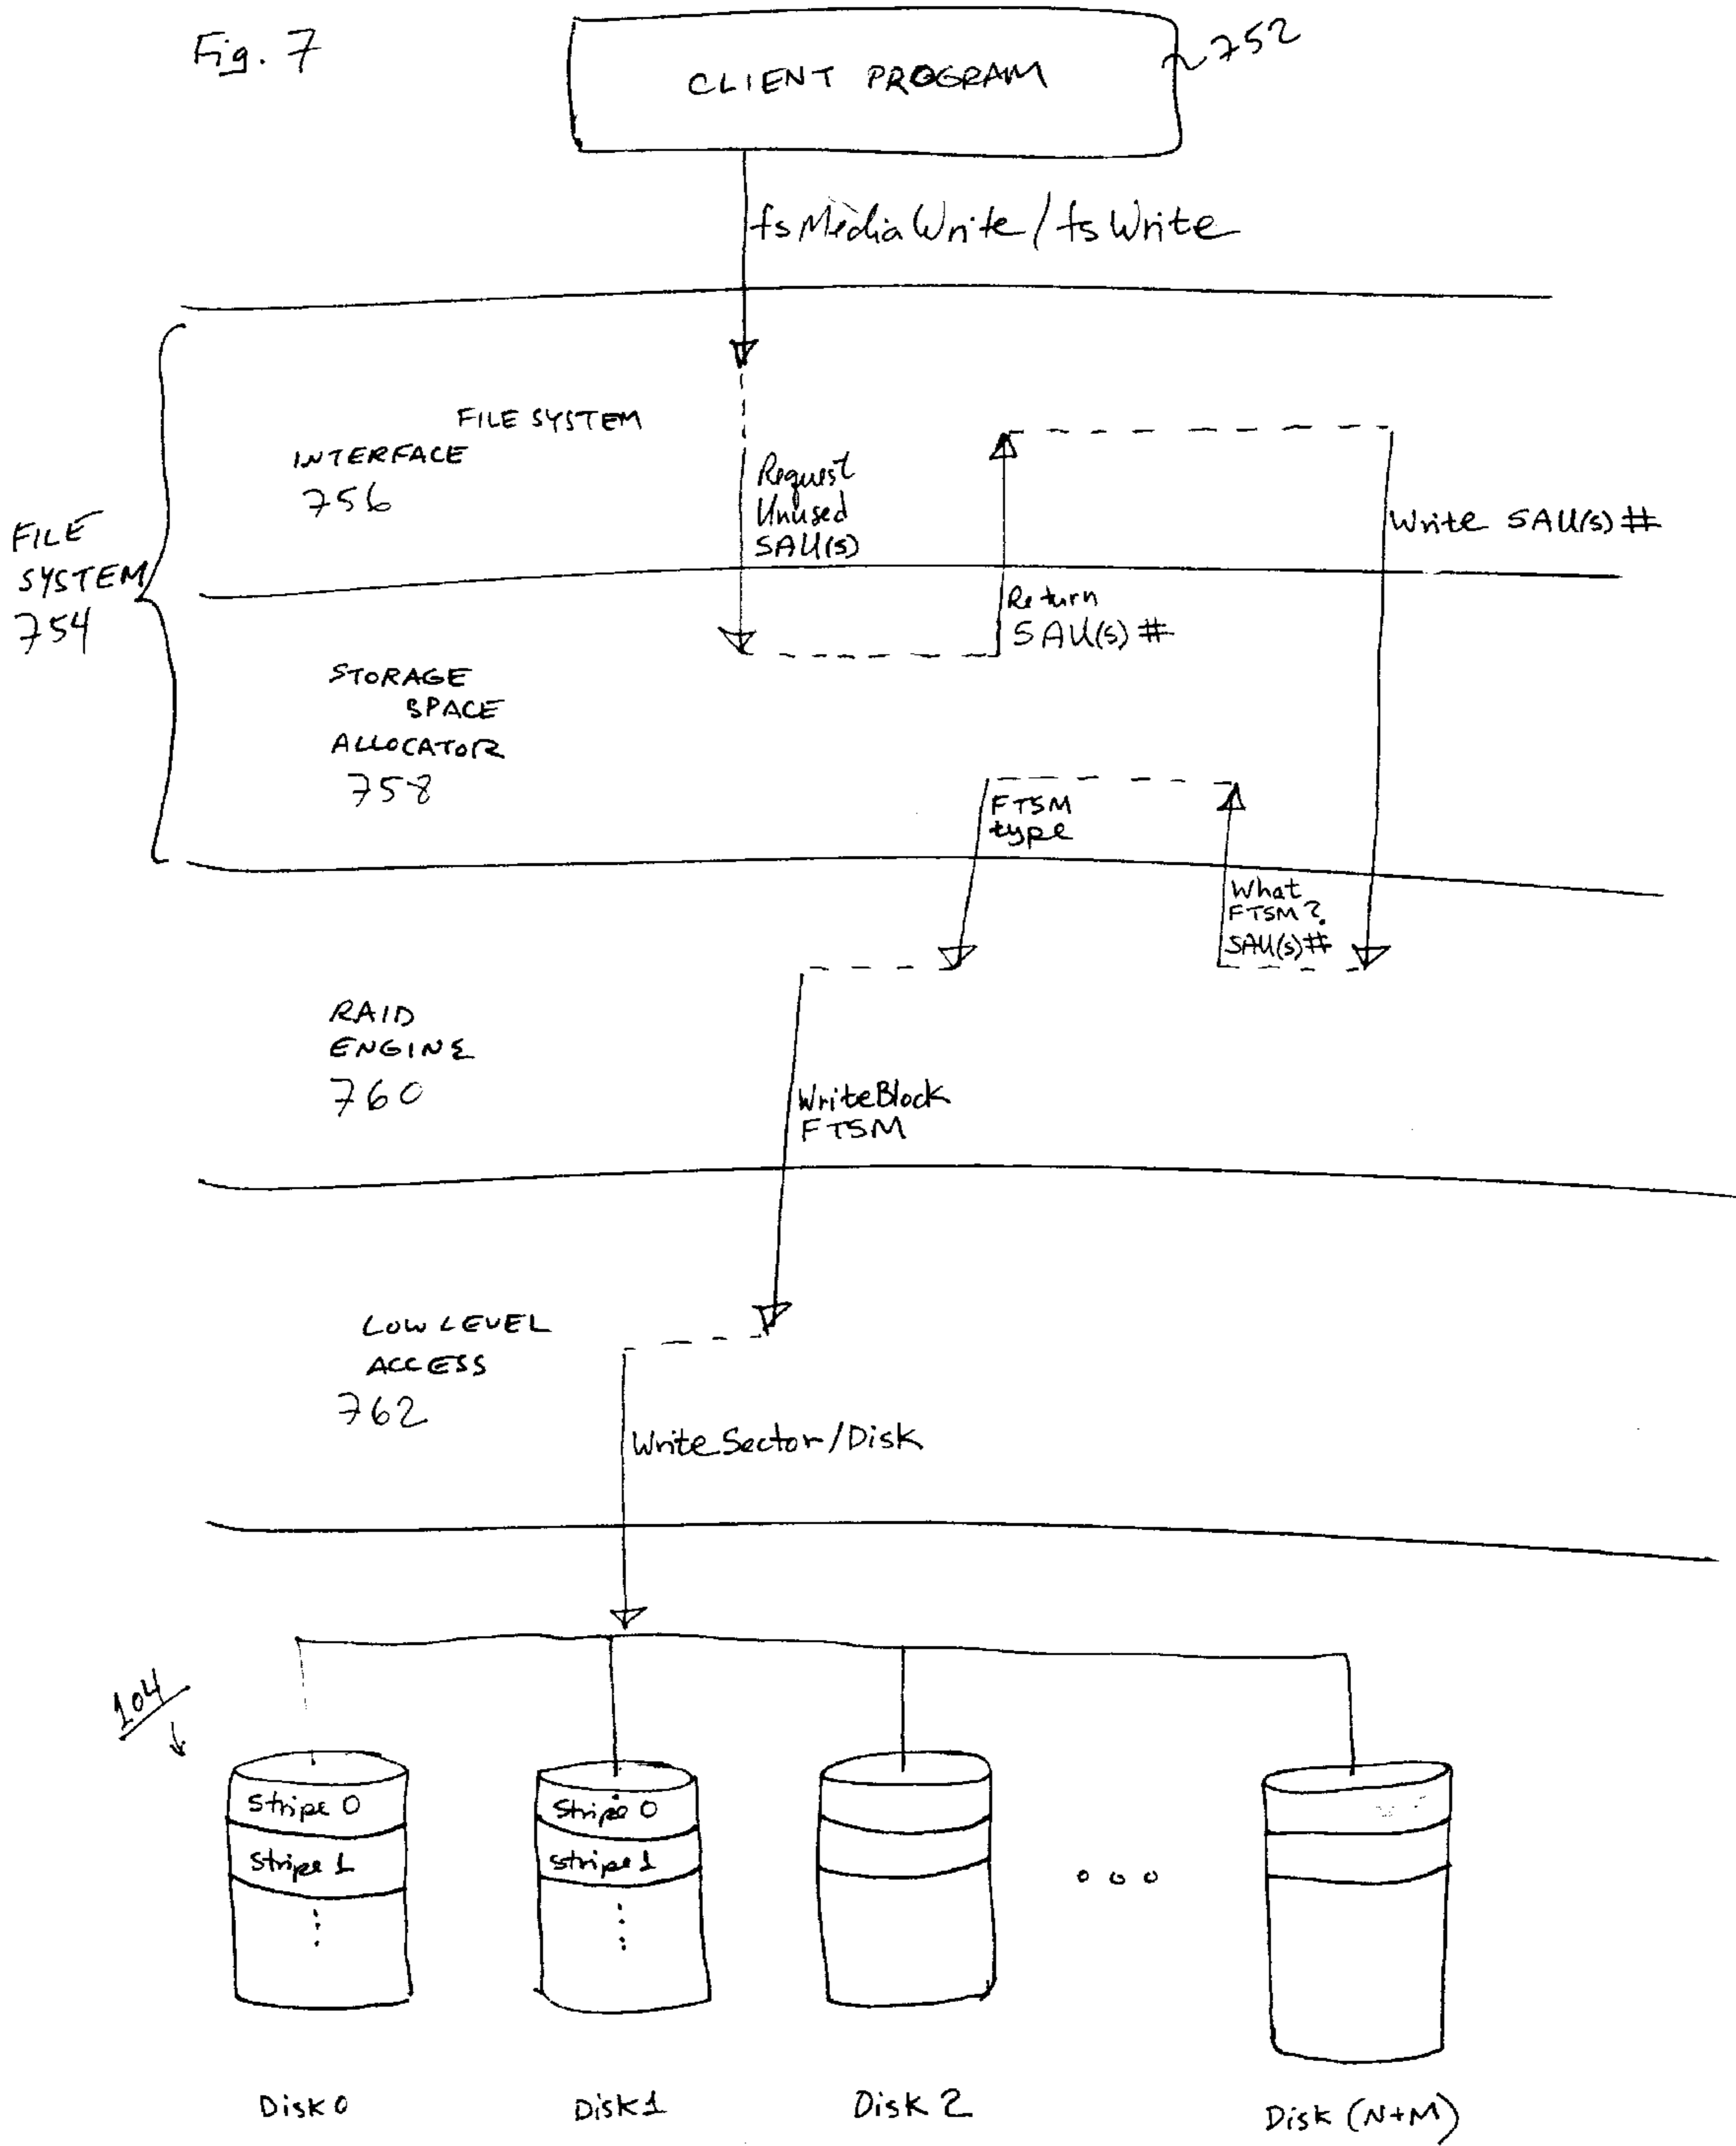 Fig. 7
CLIENT PROGRAM
752
fsMediaWrite/fsWrite
FILE SYSTEM
INTERFACE
756
Request
Unused
SAU(s)
Write SAU(s)#
FILE
SYSTEM
754
Return
SAU(s)#
STORAGE
SPACE
ALLOCATOR
758
FTSM
type
What
FTSM?
SAU(s)#
RAID
ENGINE
760
WriteBlock
FTSM
LOW LEVEL
ACCESS
762
Write Sector/Disk
104
Stripe 0
Stripe 0
Stripe 1
Stripe 1
Disk 0
Disk 1
Disk 2
Disk (N+M)